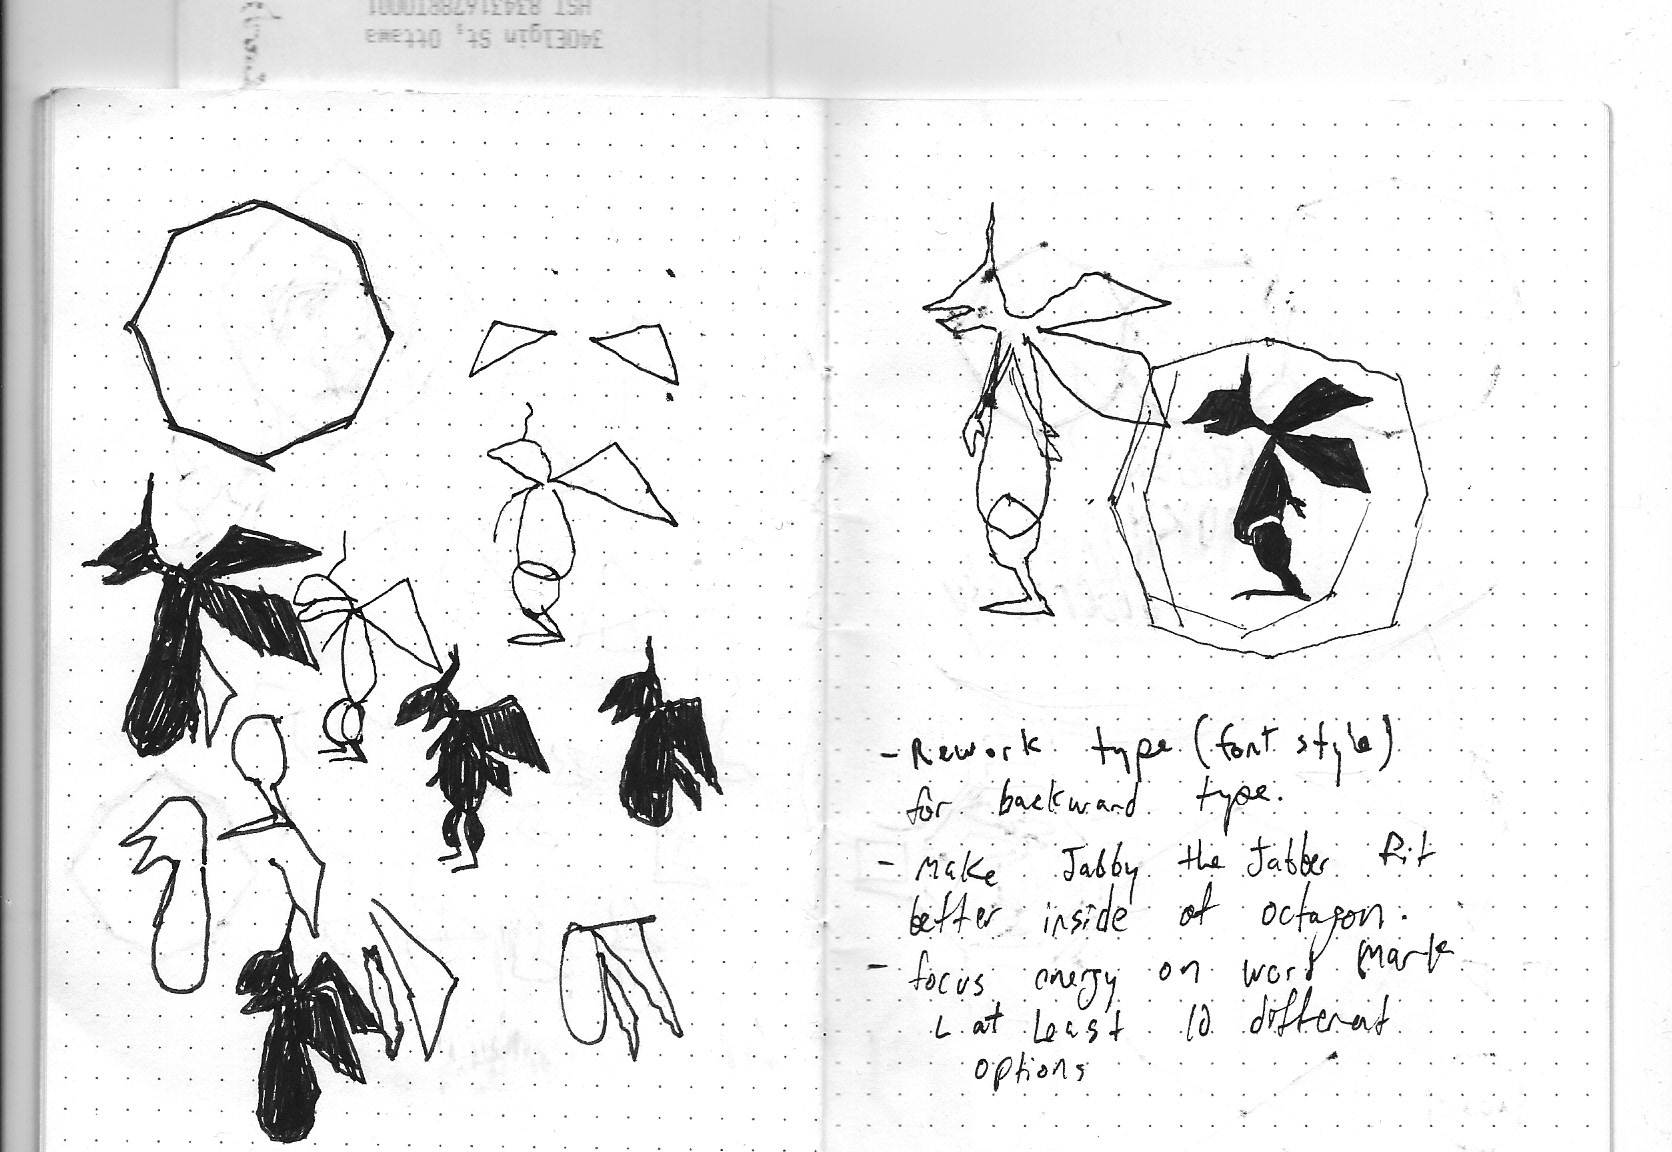 340Elgin St, Ottawa
HST 834316788RT0001
- Rework type (font style)
for backward type.
- Make Jabby the Jabber fit
better inside of octagon.
- focus energy on word mark
L at least 10 different
options